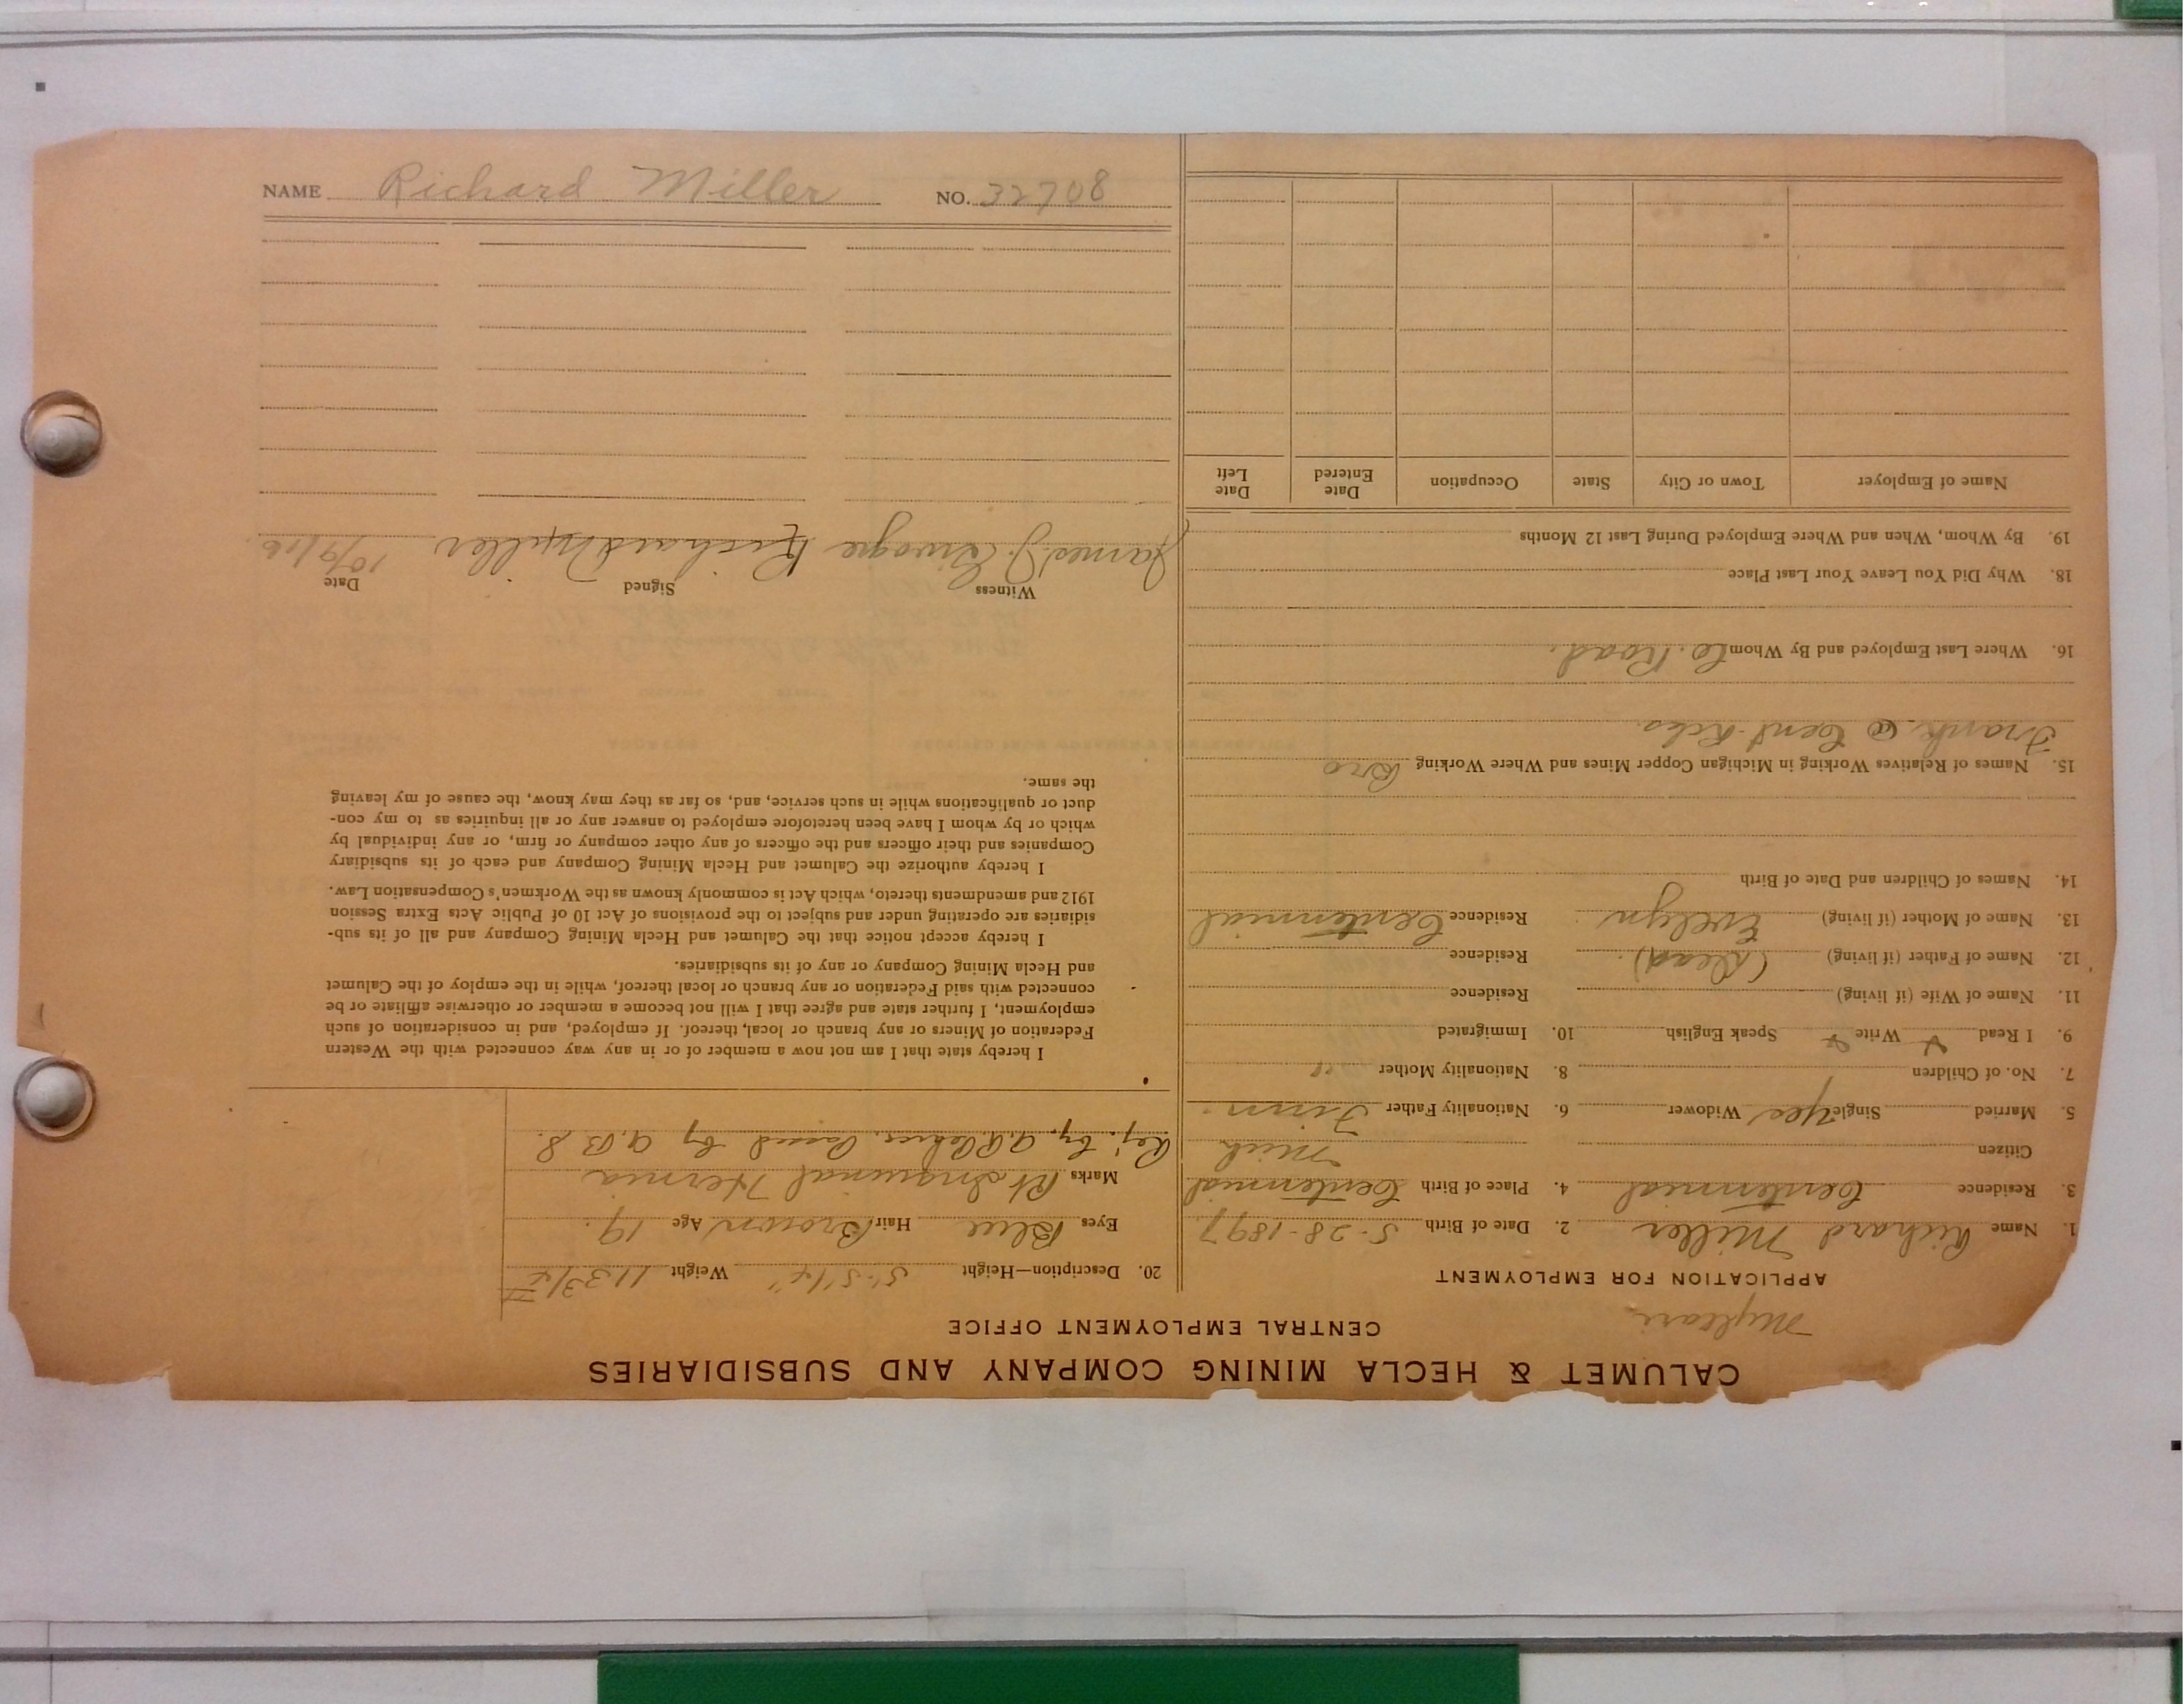 CALUMET & HECLA MINING COMPANY AND SUBSIDIARIES
CENTRAL EMPLOYMENT OFFICE
APPLICATION FOR EMPLOYMENT
1. Name Richard Miller 2. Date of Birth 5-28-1897
3. Residence Centennial 4. Place of Birth Centennial
Citizen Mich
5. Married Single Yes Widower 6. Nationality Father Finn.
7. No. of Children 8. Nationality Mother "
9. I Read Write Speak English 10. Immigrated
11. Name of Wife (if living) Residence
12. Name of Father (if living) (Dead) Residence
13. Name of Mother (if living) Evelyn Residence Centennial
14. Names of Children and Date of Birth
15. Names of Relatives Working in Michigan Copper Mines and Where Working Bro
Frank @ Cent.
16. Where Last Employed and By Whom Co. Road.
18. Why Did You Leave Your Last Place
19. By Whom, When and Where Employed During Last 12 Months
Name of Employer Town or City State Occupation Date Entered Date Left
20. Description—Height 5'-5 1/4" Weight 113 3/4
Eyes Blue Hair Brown Age 19.
Marks Rt Inguinal Hernia
Rej. by by A.B.S.
I hereby state that I am not now a member of or in any way connected with the Western
Federation of Miners or any branch or local, thereof. If employed, and in consideration of such
employment, I further state and agree that I will not become a member or otherwise affiliate or be
connected with said Federation or any branch or local thereof, while in the employ of the Calumet
and Hecla Mining Company or any of its subsidiaries.
I hereby accept notice that the Calumet and Hecla Mining Company and all of its sub-
sidiaries are operating under and subject to the provisions of Act 10 of Public Acts Extra Session
1912 and amendments thereto, which Act is commonly known as the Workmen's Compensation Law.
I hereby authorize the Calumet and Hecla Mining Company and each of its subsidiary
Companies and their officers and the officers of any other company or firm, or any individual by
which or by whom I have been heretofore employed to answer any or all inquiries as to my con-
duct or qualifications while in such service, and, so far as they may know, the cause of my leaving
the same.
Witness Signed Date
James J. Richard Miller 10/9/16
NAME Richard Miller NO. 32708